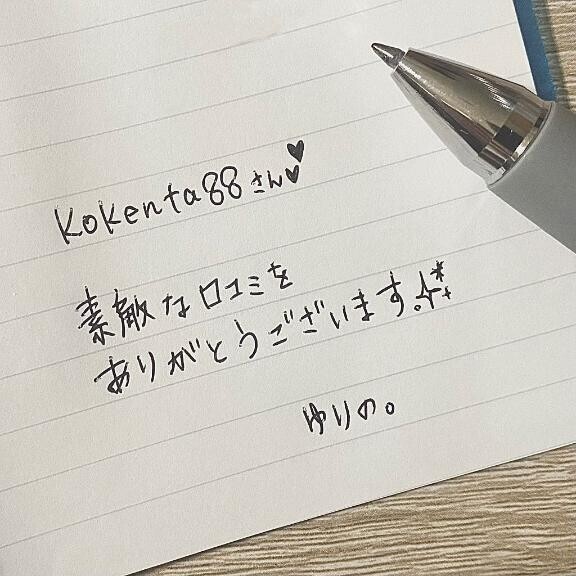 Kokenta88さん♥♥
素敵な口コミを
ありがとうございます。
ゆりの。